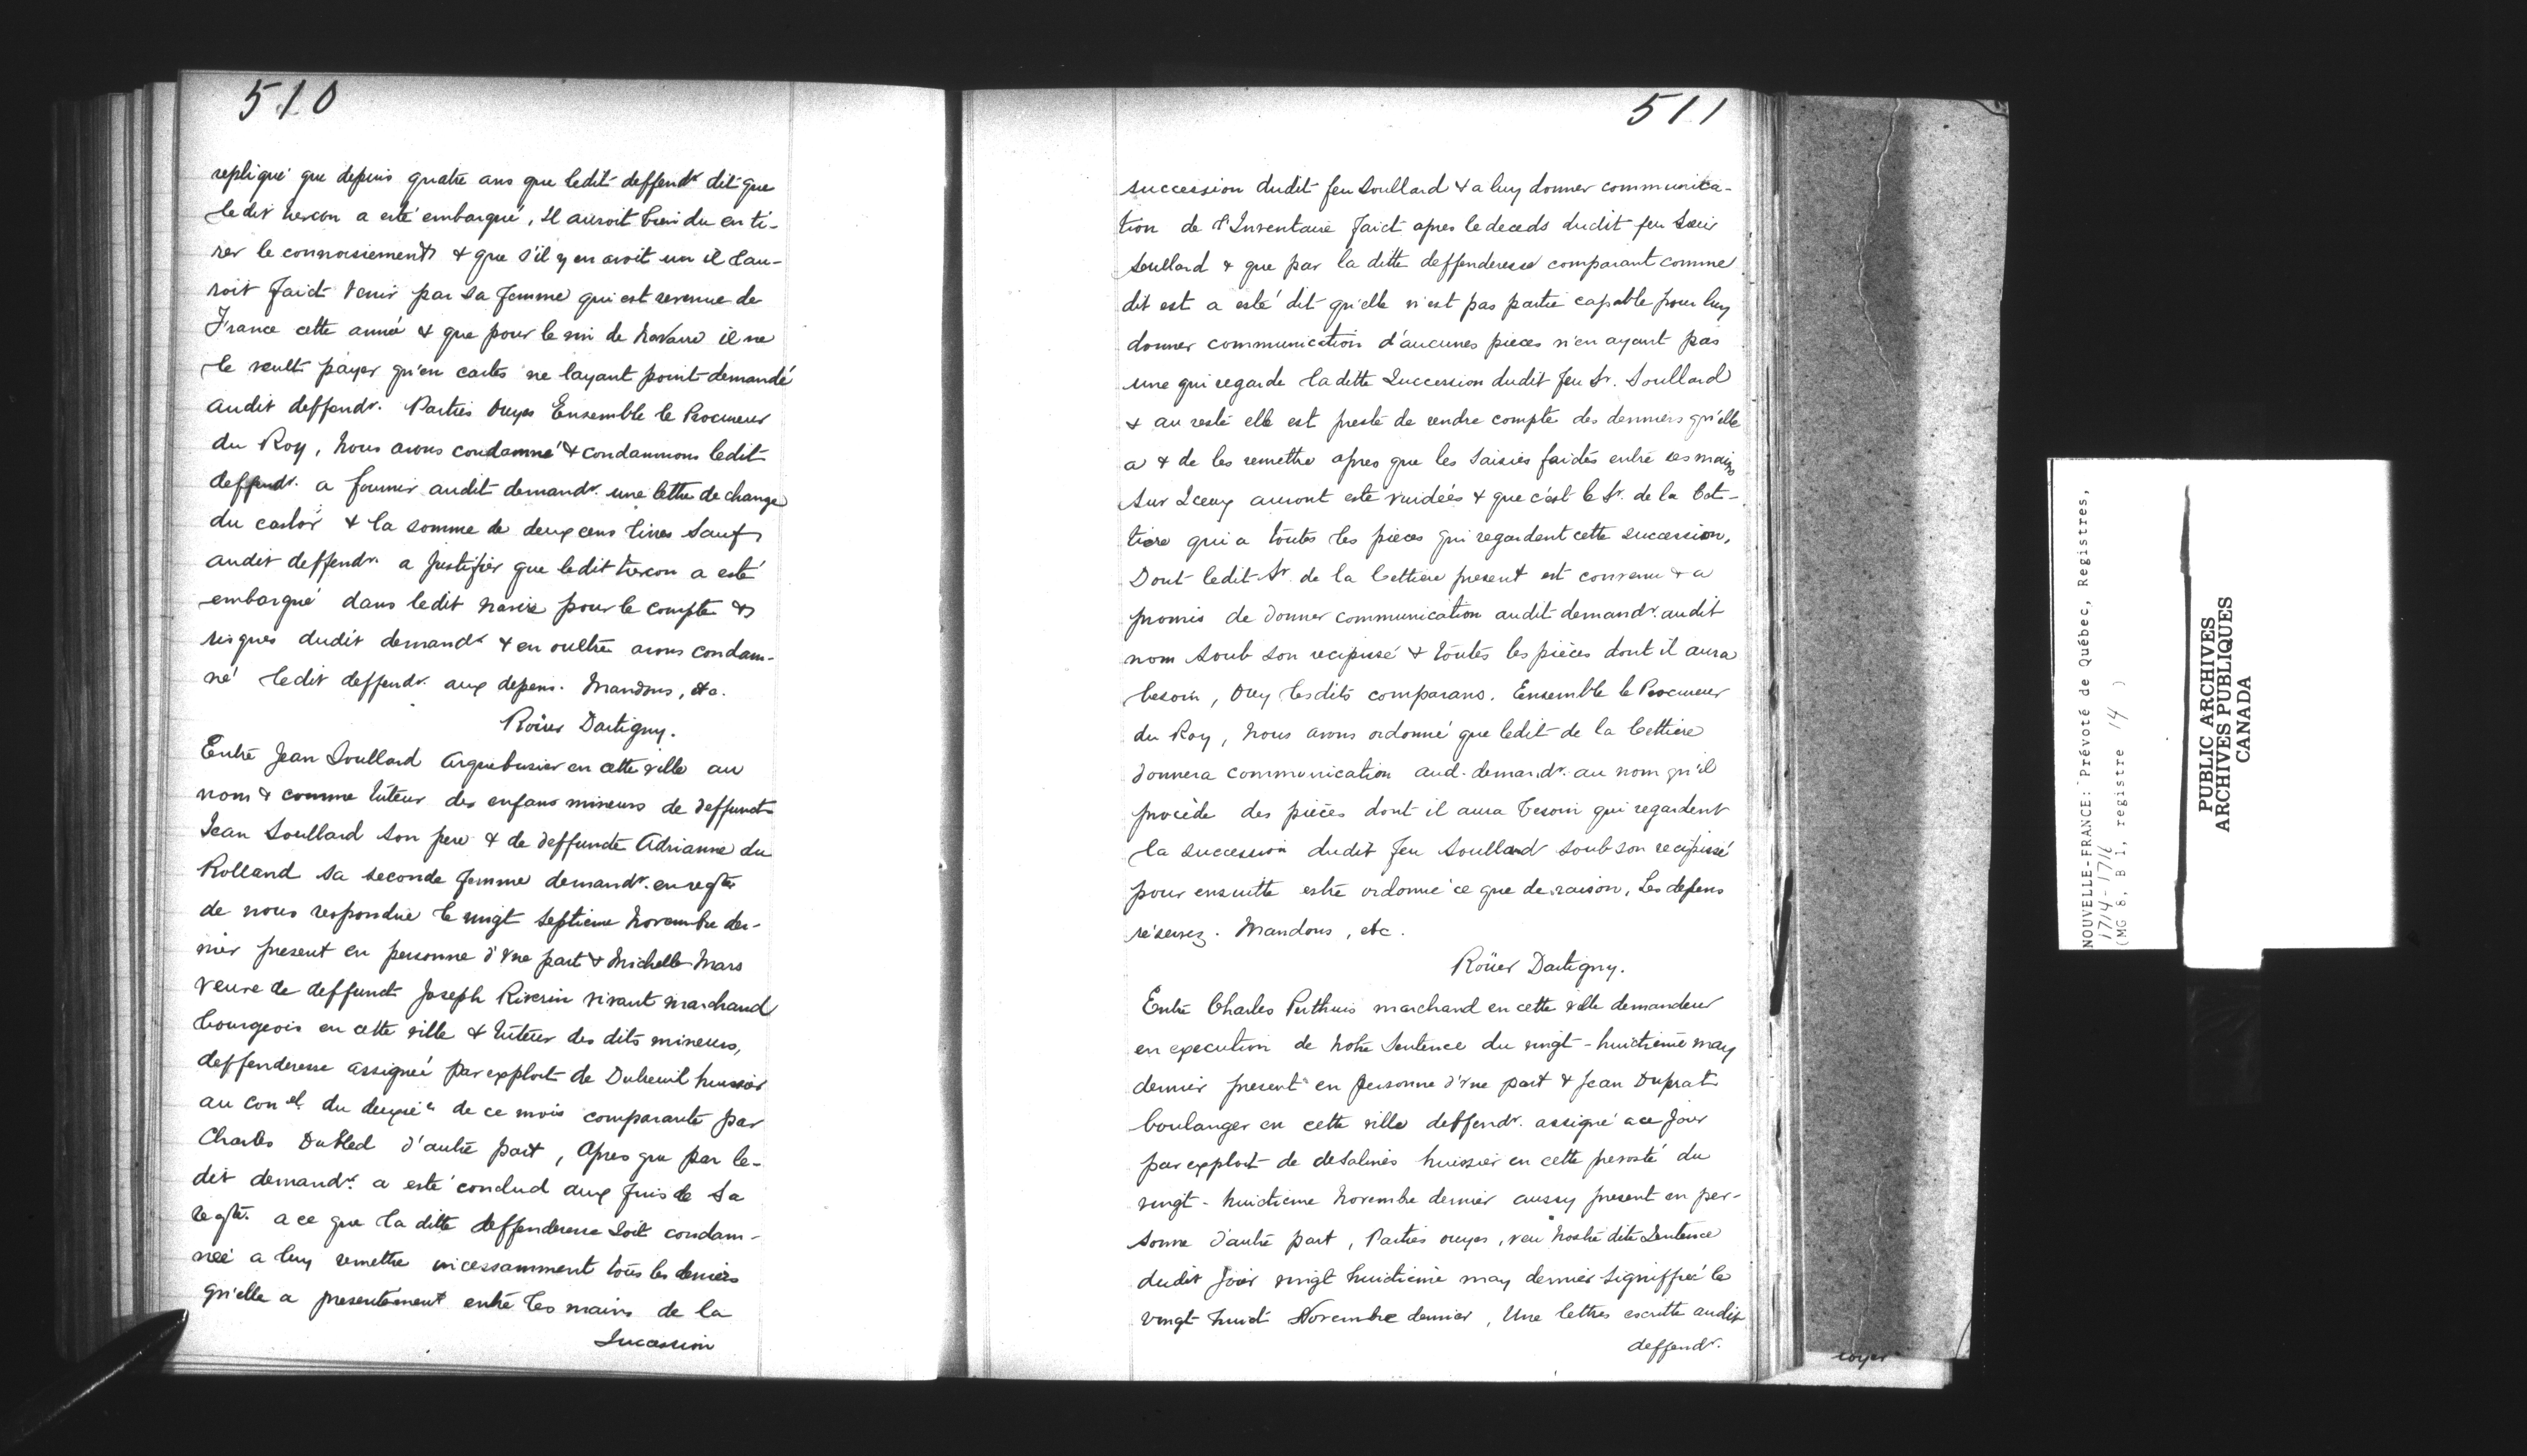 510
repliqué que depuis quatre ans que ledit deffendr dit que
ledit tiercon a esté embarqué, Il auroit bien du en ti-
rer le connoissement & que s'il y en avoit un il l'au-
roit faict venir par sa femme qui est revenue de
France cette année & que pour le vin de navarre il ne
le veult payer qu'en cartes ne layant point demandé
audit deffendr. Parties ouyes Ensemble le Procureur
du Roy, nous avons condamné & condamnons ledit
deffendr. a fournir audit demandr. une lettre de change
du castor & la somme de deux cens livres sauf
audit deffendr. a Justifier que ledit tiercon a esté
embarqué dans ledit navire pour le compte &
risques dudit demandr & en oultre avons condam-
né ledit deffendr. aux depens. Mandons, etc.
Roüer Dartigny.
Entre Jean Soullard arquebusier en cette ville au
nom & comme tuteur des enfans mineurs de deffunct
Jean Soullard son pere & de deffuncte Adrianne du
Rolland sa seconde femme demandr. en reqte
de nous respondue le vingt septieme Novembre der-
nier present en personne d'Vne part & Michelle Mars
veuve de deffunct Joseph Riverin vivant marchand
bourgeois en cette ville & tuteur des dits mineurs,
deffenderesse assignée par exploit de Dubreuil huissier
au conel du deuxiee de ce mois comparante par
Charles DuBled d'autre part, Apres que par le-
dit demandr. a esté conclud aux fins de sa
reqte. a ce que la ditte deffenderesse soit condam-
née a luy remettre incessamment tous les deniers
qu'elle a presentement entre les mains de la
Succession
511
succession dudit feu Soullard & a luy donner communica-
tion de l'Inventaire faict apres le deceds dudit feu Sieur
Soullard & que par la ditte deffenderesse comparant comme
dit est a esté dit qu'elle n'est pas partie capable pour luy
donner communication d'aucunes pieces n'en ayant pas
une qui regarde ladite Succession dudit feu Sr. Soullard
& au reste elle est preste de rendre compte des denniers qu'elle
a & de les remettre apres que les saisies faictes entre ses mains
sur Iceux auront esté vuidées & que c'est le Sr. de la Cet-
tiere qui a toutes les pieces qui regardent cette succession,
Dont ledit Sr. de la Cettiere present est convenu & a
promis de donner communication audit demandr. audit
nom soub son recipissé & toutes les pièces dont il aura
besoin, Ouy lesdits comparans. Ensemble le Procureur
du Roy, nous avons ordonné que ledit de la Cettiere
donnera communication aud. demandr. au nom qu'il
procède des pièces dont il aura besoin qui regardent
la succession dudit feu Soulland soub son recipissé
pour ensuitte estre ordonné ce que de raison, Les depens
réservez. Mandons, etc.
Roüer Dartigny.
Entre Charles Perthuis marchand en cette ville demandeur
en execution de notre Sentence du vingt-huictieme may
dernier present en personne d'Vne part & Jean Duprat
boulanger en cette ville deffendr. assigné a ce Jour
par exploit de deSalines huissier en cette prevosté du
vingt-huictieme novembre dernier aussy present en per-
sonne d'autre part, Parties ouyes, veu nostre dite Sentence
dudit Jour vingt huictieme may dernier signiffiée le
vingt huict Novembre dernier, Une lettres escritte audit
deffendr.
royer
NOUVELLE-FRANCE: Prévoté de Québec, Registres,
1714-1716
(MG 8, B 1, registre 14 )
PUBLIC ARCHIVES
ARCHIVES PUBLIQUES
CANADA